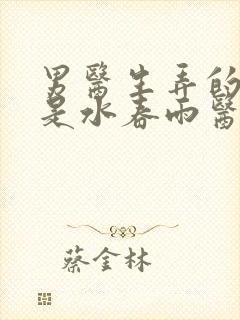 男醫生弄的
是水春雨醫
蔡金林